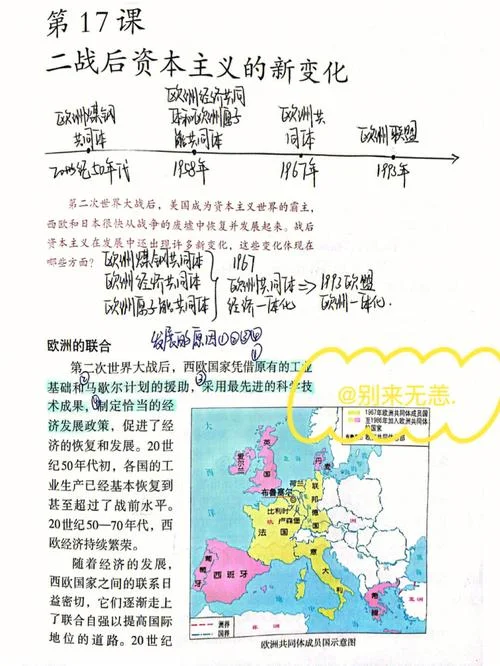 第17课
二战后资本主义的新变化
欧洲煤钢
共同体
欧洲经济共同
体和欧洲原子
能共同体
欧洲共
同体
欧洲联盟
20世纪50年代
1958年
1967年
1993年
第二次世界大战后，美国成为资本主义世界的霸主，
西欧和日本很快从战争的废墟中恢复并发展起来。战后
资本主义在发展中还出现许多新变化，这些变化体现在
哪些方面？
欧洲煤钢共同体
欧洲经济共同体
欧洲原子能共同体
1967
欧洲共同体
经济一体化
1993欧盟
欧洲一体化
发展的原因①②③④
欧洲的联合
第二次世界大战后，西欧国家凭借原有的工业
基础和马歇尔计划的援助，采用最先进的科学技
术成果，制定恰当的经
济发展政策，促进了经
济的恢复和发展。20世
纪50年代初，各国的工
业生产已经基本恢复到
甚至超过了战前水平。
20世纪50—70年代，西
欧经济持续繁荣。
随着经济的发展，
西欧国家之间的联系日
益密切，它们逐渐走上
了联合自强以提高国际
地位的道路。20世纪
@别来无恙.
1967年欧洲共同体成员国
至1986年加入欧洲共同体
的国家
爱尔兰
英国
丹麦
荷兰
布鲁塞尔
比利时
卢森堡
联邦德国
法国
意大利
葡萄牙
西班牙
希腊
洲界
国界
欧洲共同体成员国示意图